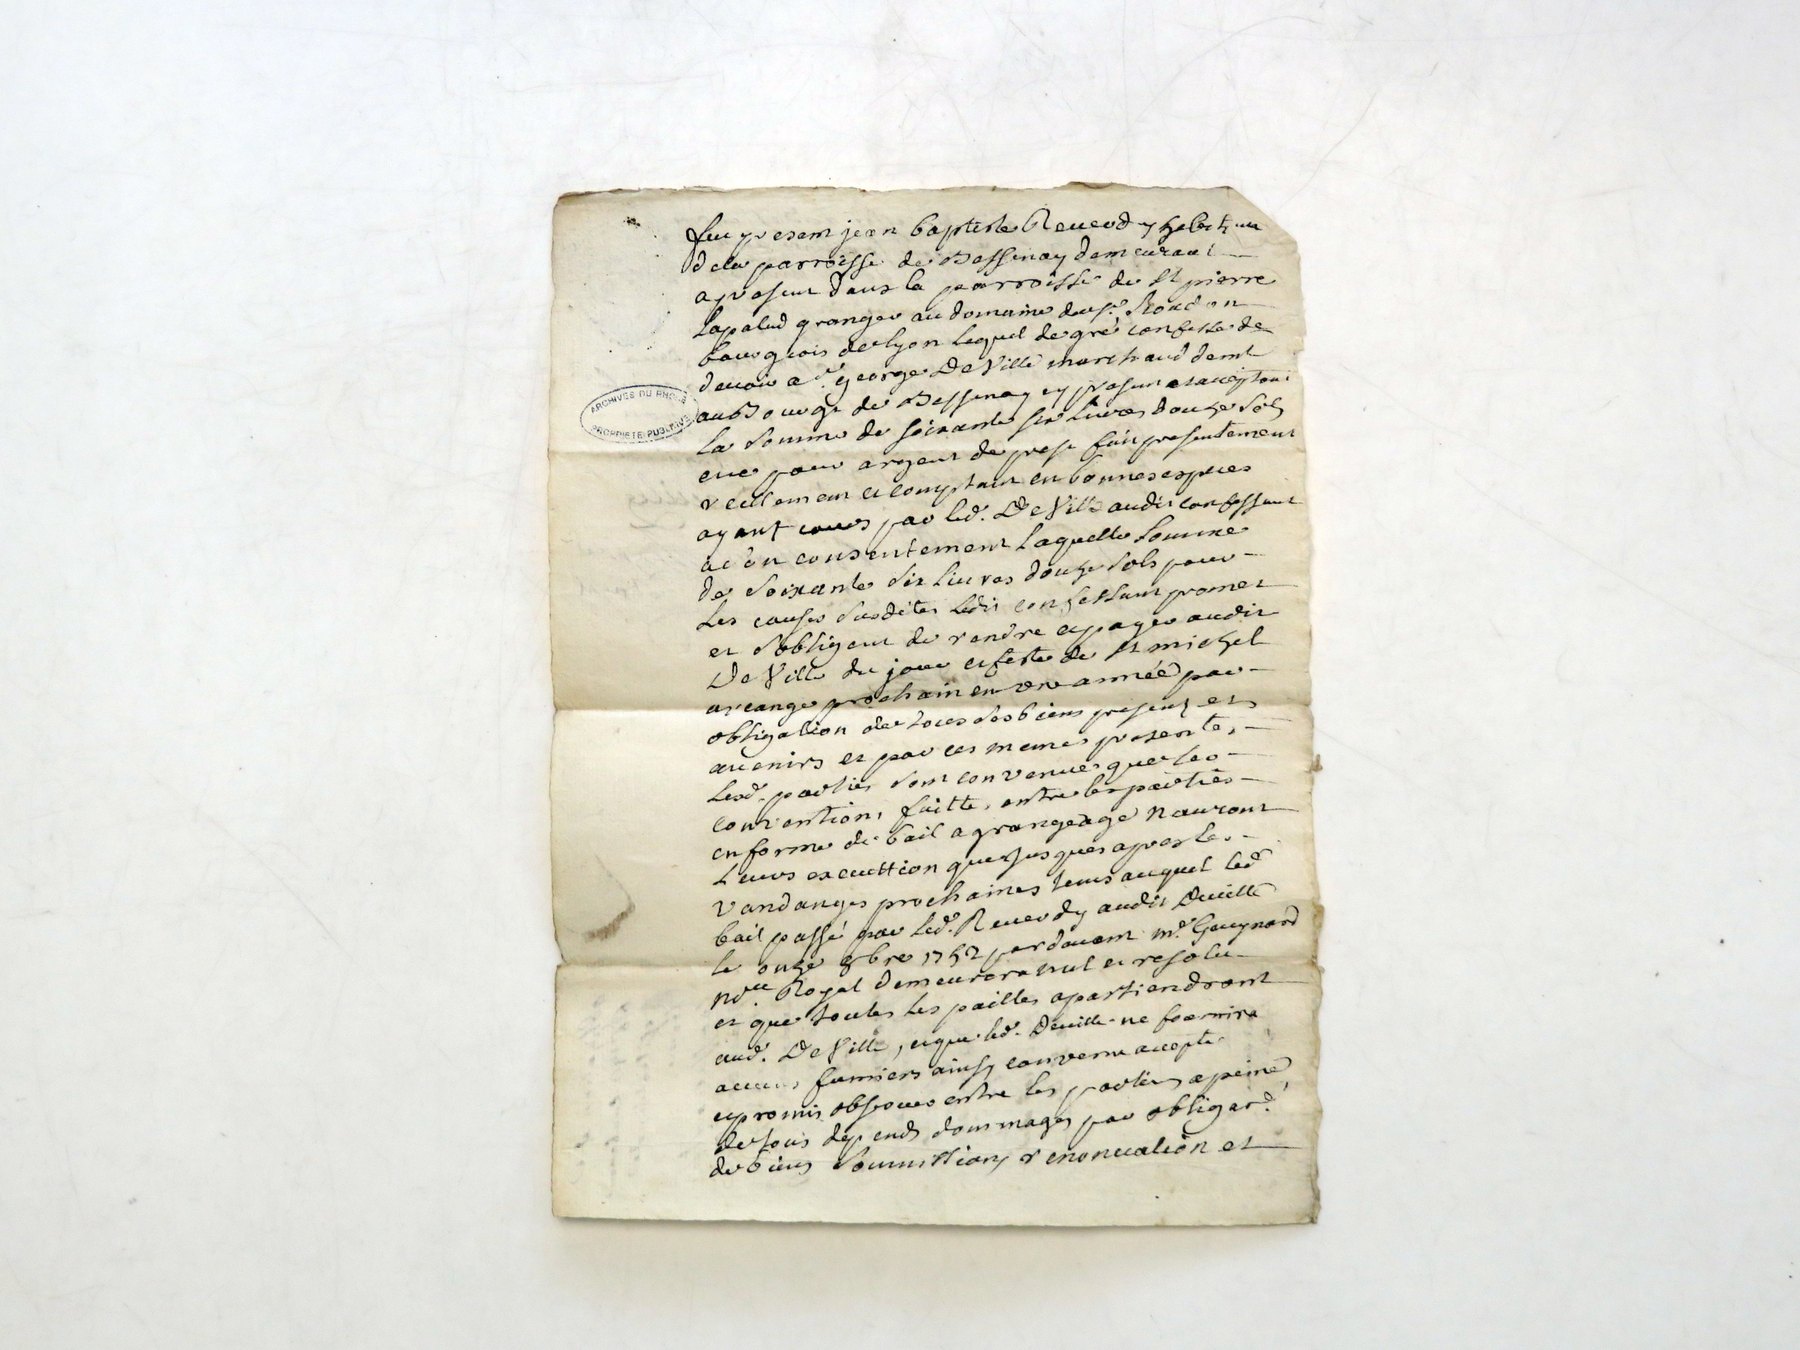 fut present jean baptiste Reverdy habitant
dela parroisse de Bessenay demeurant
apresent dans la parroisse de St pierre
Lapalud granger au domaine du sr. Rondon
bourgeois de Lyon lequel de gré confesse de
devoir a sr. george De Ville marchand demt
au Bourg de Bessenay cy present et acceptant
la somme de soixante six livres douze sols
et ce pour argent de prest fait presentement
reellement et comptant en bonnes espces
ayant cours par led. De Ville audit confessant
a son consentement laquelle somme
de soixante six livres douze sols pour
les causes susdites ledit confessant promet
et sobligent de rendre et payer audit
De Ville du jour et feste de St michel
arcange prochain en une année par
obligation de tous ses biens presents et
avenirs et par ces memes presente,
Lesd. parties sont convenues que les
convention, faitte, entre les parties
en forme de bail a grangeage nauront
Leurs executtion que jusques apres les
vandanges prochaines tems auquel led
bail passé par led. Reverdy audit Deville
le onze 8bre 1752 pardevant me. Gouynard
Nore. Royal demeurera nul et resolu
et que toutes les pailles apartiendront
aud. De Ville, et que led. Deville ne fournira
aucuns fumiers ainsy convenu accepté
et promis observer entre les parties a peine
de tous depends dommages par obligaon.
de biens soumissions renonciation et
ARCHIVES DU RHONE
PROPRIETE PUBLIQUE